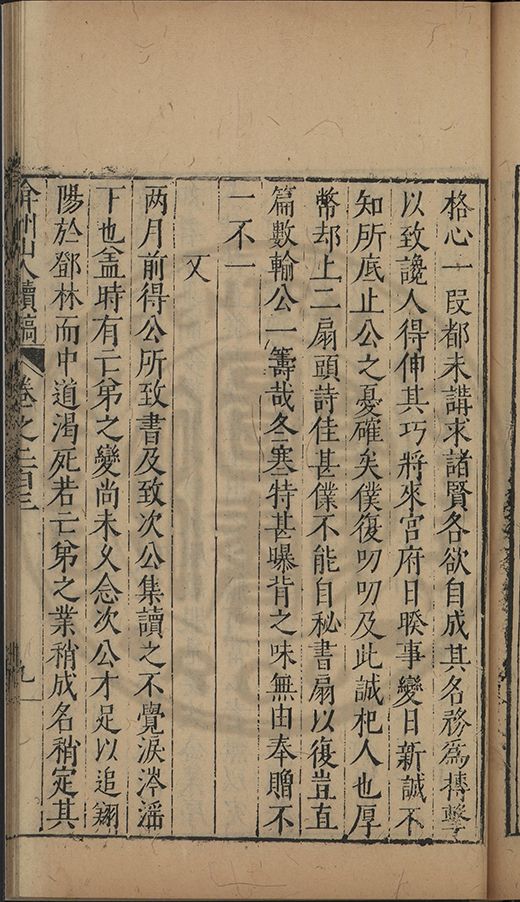 格心一叚都未講求諸賢各欲自成其名務爲摶擊
以致讒人得伸其巧將來宮府日暌事變日新誠不
知所底止公之憂確矣僕復叨叨及此誠杞人也厚
幣却上二扇頭詩佳甚僕不能自秘書扇以復豈直
篇數輸公一籌哉冬寒特甚曝背之味無由奉贈不
一不一
又
两月前得公所致書及致次公集讀之不覺淚涔滛
下也盖時有亡弟之變尚未乆念次公才足以追翱
陽於鄧林而中道渴死若亡弟之業稍成名稍定其
弇州山人續稿
卷之二百三
九